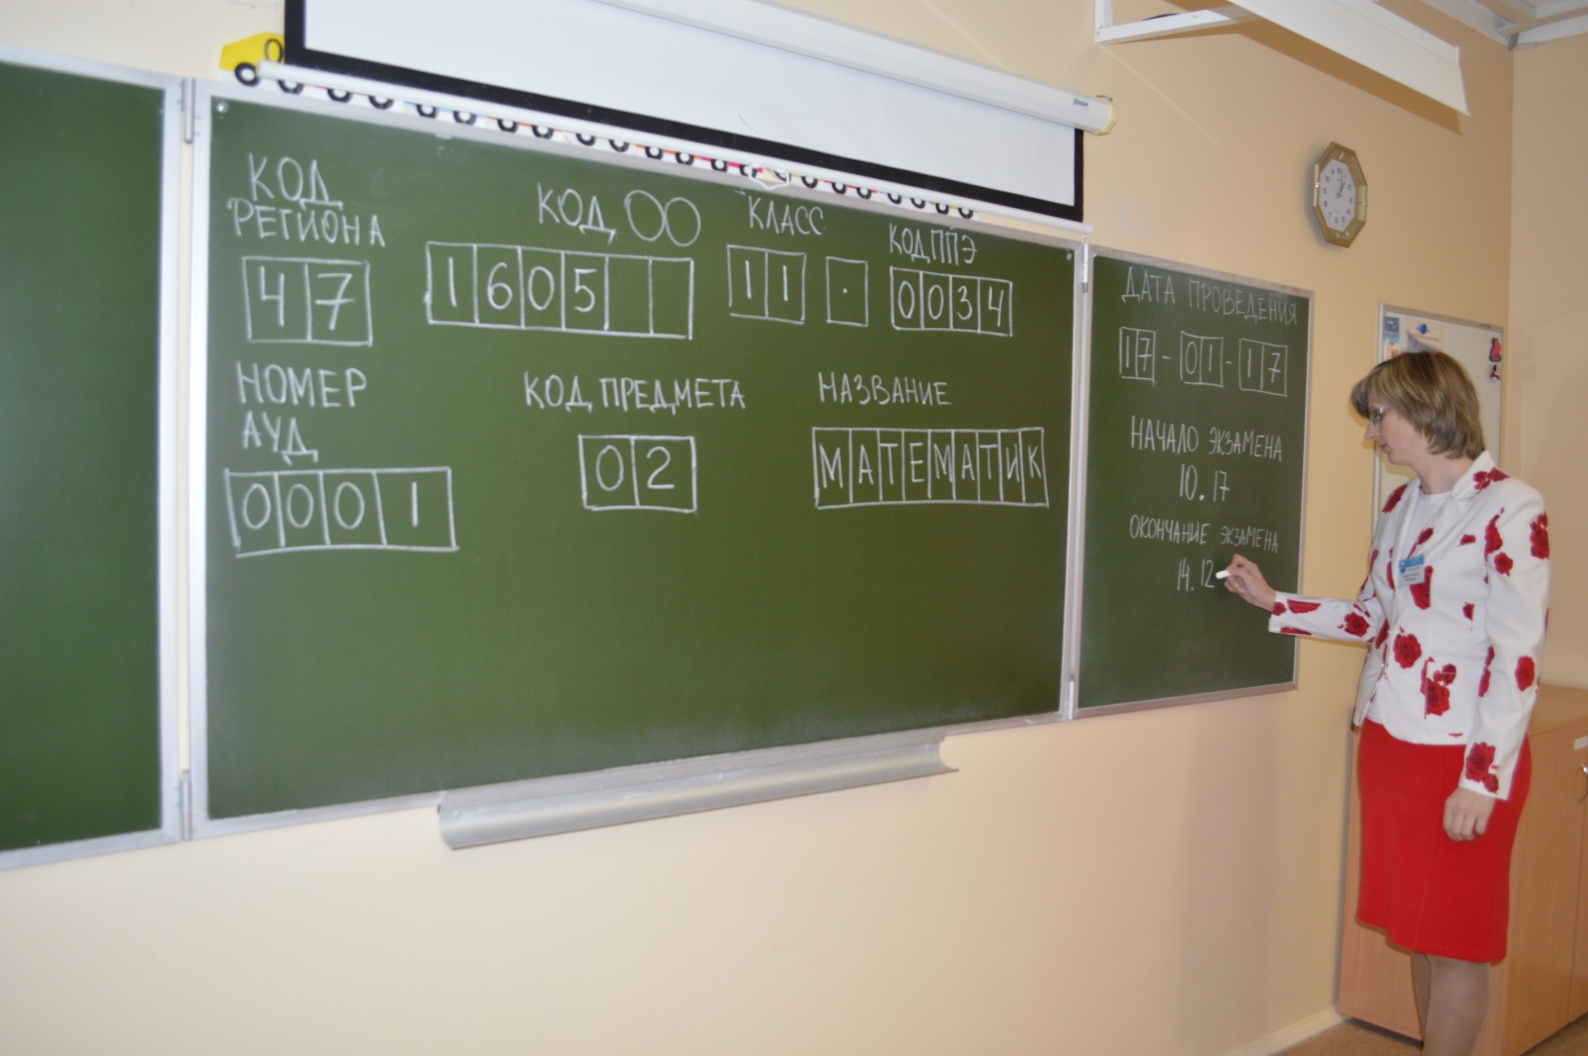 КОД РЕГИОНА
47
КОД ОО
1605
КЛАСС
11 .
КОД ППЭ
0034
НОМЕР АУД
0001
КОД ПРЕДМЕТА
02
НАЗВАНИЕ
МАТЕМАТИК
ДАТА ПРОВЕДЕНИЯ
17-01-17
НАЧАЛО ЭКЗАМЕНА
10.17
ОКОНЧАНИЕ ЭКЗАМЕНА
14.12